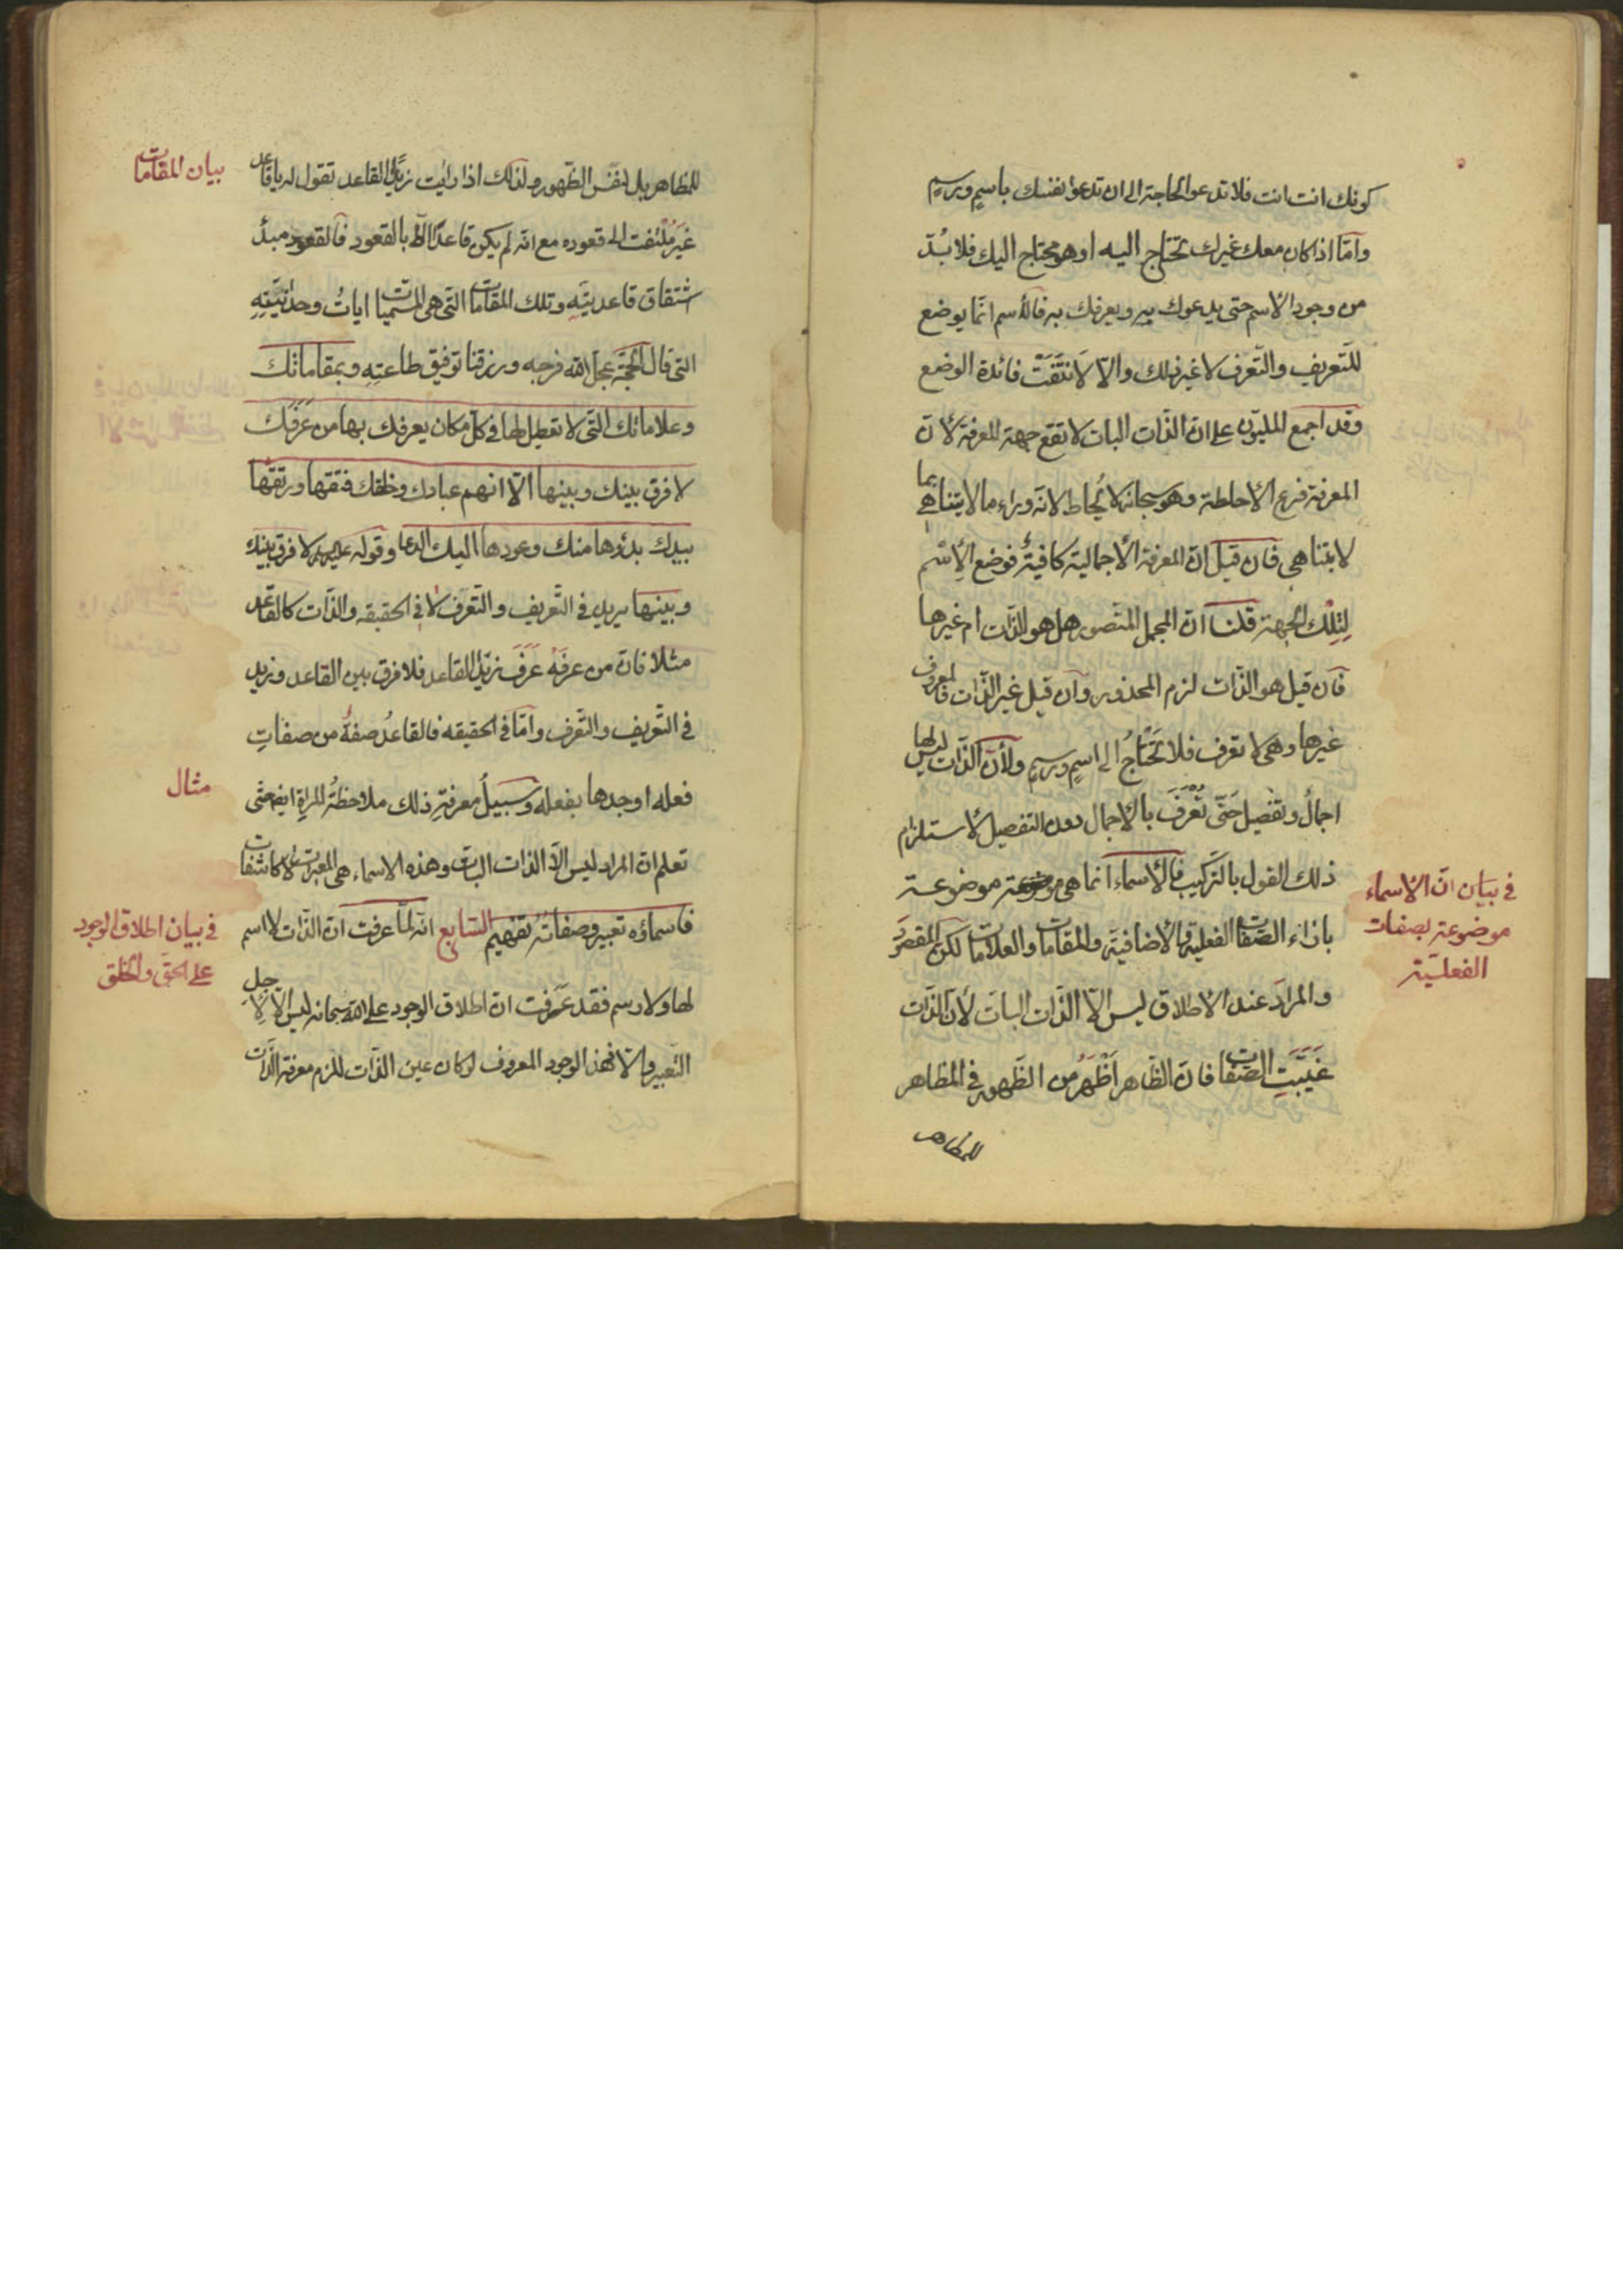 كونك انت انت فلا تدعو الحاجة الى ان تدعو نفسك باسمٍ ورسمٍ
وامّا اذا كان معك غيرك تحتاج اليه او هو محتاج اليك فلا بُدّ
من وجود الاسم حتى يدعوك به ويعرفك به فالأسم انّما يوضع
للتّعريف والتّعرف لا غير ذلك والّا لَانتَفَتْ فائدة الوضع
وقد اجمع المليّون على ان الذّات البات لا تقع جهة المعرفة لأن
المعرفة فرع الأحاطة وهو سبحانه لا يُحاط لانّه وراء ما لا يتناهى بما
لا يتناهى فان قيل ان المعرفة الأجمالية كافيةٌ فوضع الأسْم
لِتِلْك الجهة قلنا ان المجمل المتصور هل هو الذّات ام غيرها
فان قيل هو الذّات لزم المحذور وان قيل غير الذّات فالمعروف
غيرها وهى لا تعرف فلا تَحْتاجُ الى اسمٍ ورسمٍ ولأنّ الذّات ليس لها
اجمالٌ وتفصيل حَتّى تُعْرَفَ بالاجمال دون التفصيل لأستلزام
ذلك القول بالتّركيب فالأسماء انما هى موضوعة موضوعة
بازاء الصّفات الفعلية والأضافية والمقامات والعلامات لكن المقصود
والمراد عند الاطلاق ليس الّا الذّات البات لأن الذّات
غَيَّبَتِ الصّفات فان الظّاهر اَظْهَرُ من الظّهور فى المظاهر
للمظاهر
في بيان انّ الاسماء
موضوعة بصفات
الفعليّة
للمظاهر بل لنفس الظّهور ولذلك اذا رايت زيدًا القاعد تقول له يا قاعد
غَيرَ مُلْتَفت الى قعوده مع انه لم يكن قاعدًا الّا بالقعود فالقعود مبدأ
اشتقاق قاعديّتِه وتلك المقامات التى هى المسميات اياتُ وحدانيّتِهِ
التى قال الحجّة عجل الله فرجه ورزقنا توفيق طاعتِهِ وبمقاماتك
وعلاماتك التّى لا تعطيل لها فى كلّ مكان يعرفك بها من عَرَفَك
لا فرق بينك وبينها الّا انهم عبادك وخلقك فتقها ورتقها
بيدك بدؤها منك وعودها اليك الدعا وقوله عليه السلم لا فرق بينك
وبينها يريد فى التّعريف والتّعرّف لا فى الحقيقه والذّات كالقاعد
مثلا فان من عرفَهُ عَرَفَ زيدًا القاعد فلا فرق بين القاعد وزيد
فى التّعريف والتّعرف وامّا فى الحقيقه فالقاعدُ صفةٌ من صفاتِ
فعله اوجدها بفعله وسبيلُ معرفةِ ذلك ملاحظةُ المراةِ ايضا حتّى
تعلم ان المراد ليس الّا الذات البات وهذه الاسماء هى المعبرات كاشفات
فاسماؤه تعبير وصفاتُه تفهيم السّابع انّه لمّا عرفت ان الذّات لا اسم
لها ولا رسم فقد عَرفت ان اطلاق الوجود على الله سبحانه ليس الّا لِاَجل
التّعبير والّا فهذ الوجود المعروف لو كان عين الذّات للزم معرفة الذّات
بيان المقامات
مثال
في بيان اطلاق الوجود
على الحقّ والخلق